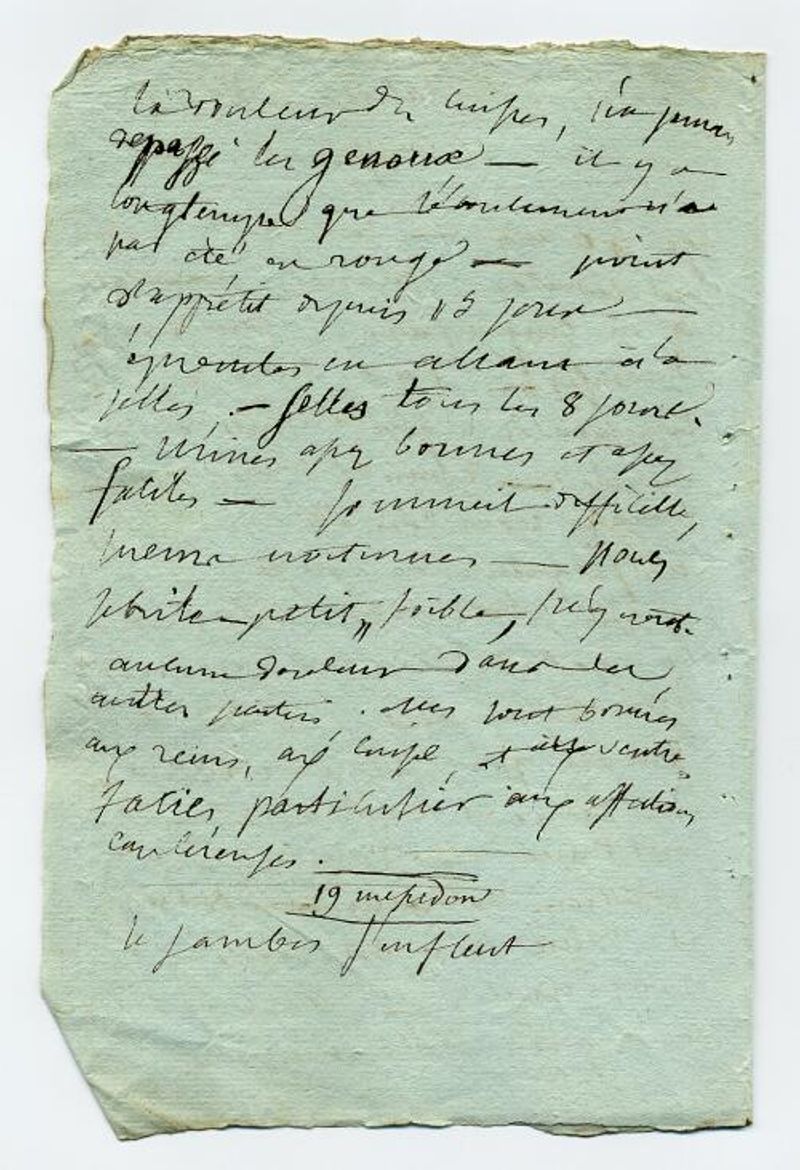 la douleur des cuisses, n'a jamais
depassé les genoux — il y a
longtemps que l'écoulement n'a
pas été en rouge — point
d'appétit depuis 15 jours —
épreintes en allant à la
selles. — selles tous les 8 jours.
— urines assez bonnes et assez
faciles — sommeil difficille,
nocturnes — pouls
febrile petit, foible,
aucune douleur dans les
autres parties. elles sont bornées
aux reins, aux cuisses, et au ventre
facies particulier aux affections
cancéreuses.
19 messidor
le jambes s'enflent